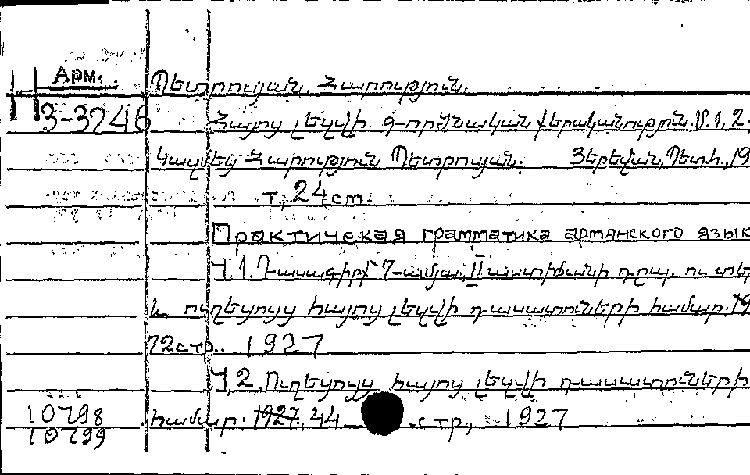 Арм. Պետրոսյան Հարություն.
3-3246 Հայոց լեզվի գործնական քերականություն. Մ.1, 2.
Կազմեց Հարություն Պետրոսյան. Յերեվան, Պետհ., 19
т, 24 cm.
Практическая грамматика армянского язык
Ч.1. Դասագիրք 7-ամյա, II աստիճանի դպր. ու տեխ
և ուղեցույց հայոց լեզվի դասատուների համար. 19
72 стр. 1927
Ч.2. Ուղեցույց հայոց լեզվի դասատուների
10798 համար. 1927, 44 стр, 1927
10799